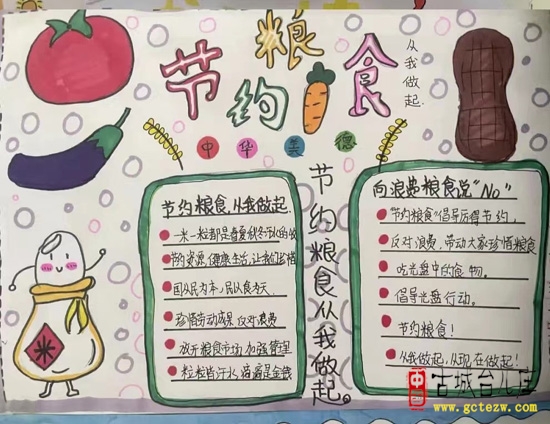 节约粮食
从我做起.
中华美德
节约粮食,从我做起.
一米一粒都是春夏秋冬
节约资源,健康生活,让我们
国以民为本,民以食为天.
珍惜劳动成果 反对浪费
放开粮食市场 加强管理
粒粒皆汗水 滴滴是金钱
节约粮食从我做起。
向浪费粮食说"No"
节约粮食"倡导厉行节约,
反对浪费,带动大家珍惜粮食
吃光盘中的食物。
倡导光盘行动。
节约粮食!
从我做起,从现在做起!
米
古城台儿庄
www.gctezw.com